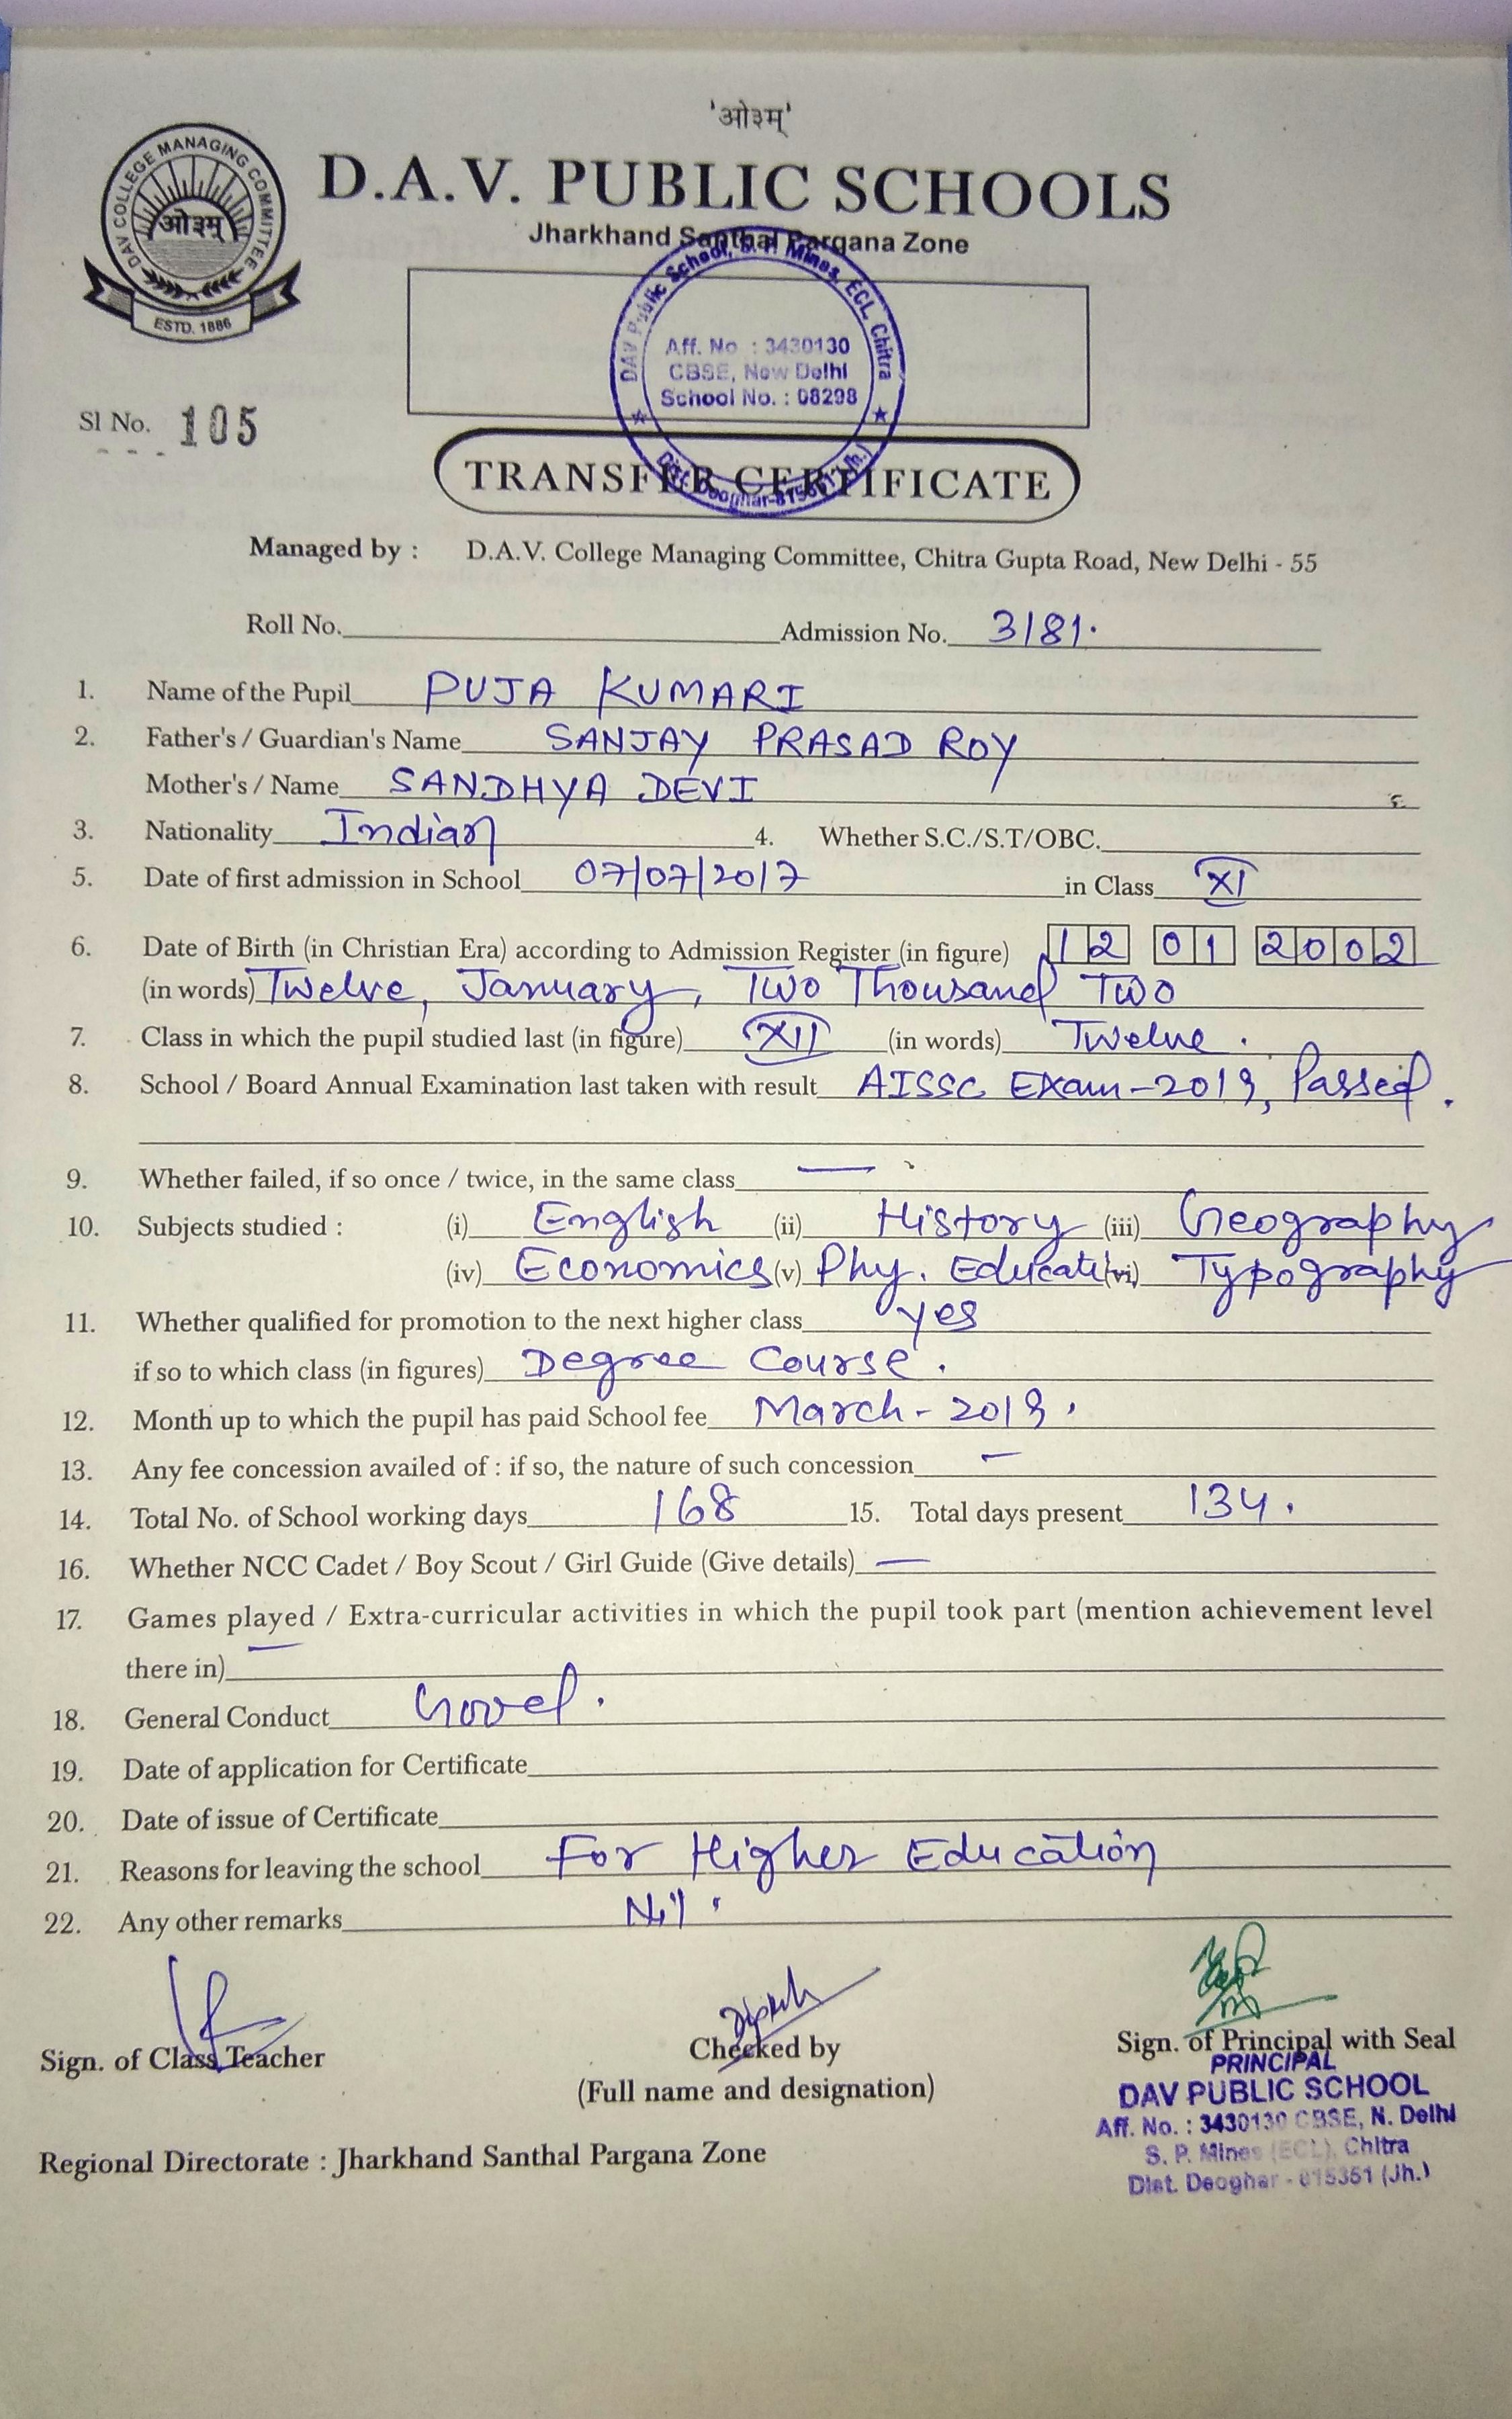 'ओ३म्'
DAV COLLEGE MANAGING COMMITTEE
ओ३म्
ESTD. 1886
D.A.V. PUBLIC SCHOOLS
Jharkhand Santhal Pargana Zone
DAV Public School, S. P. Mines, ECL, Chitra
Aff. No : 3430130
CBSE, New Delhi
School No. : 08298
Dist. Deoghar-815351 (Jh.)
Sl No. 105
TRANSFER CERTIFICATE
Managed by : D.A.V. College Managing Committee, Chitra Gupta Road, New Delhi - 55
Roll No. Admission No. 3181.
1. Name of the Pupil PUJA KUMARI
2. Father's / Guardian's Name SANJAY PRASAD ROY
Mother's / Name SANDHYA DEVI
3. Nationality Indian 4. Whether S.C./S.T/OBC.
5. Date of first admission in School 07/07/2017 in Class XI
6. Date of Birth (in Christian Era) according to Admission Register (in figure) 12 01 2002
(in words) Twelve, January, Two Thousand Two
7. Class in which the pupil studied last (in figure) XII (in words) Twelve.
8. School / Board Annual Examination last taken with result AISSC Exam-2019, Passed.
9. Whether failed, if so once / twice, in the same class —
10. Subjects studied : (i) English (ii) History (iii) Geography
(iv) Economics (v) Phy. Educati (vi) Typography
11. Whether qualified for promotion to the next higher class yes
if so to which class (in figures) Degree Course.
12. Month up to which the pupil has paid School fee March-2019.
13. Any fee concession availed of : if so, the nature of such concession —
14. Total No. of School working days 168 15. Total days present 134.
16. Whether NCC Cadet / Boy Scout / Girl Guide (Give details) —
17. Games played / Extra-curricular activities in which the pupil took part (mention achievement level
there in) —
18. General Conduct Good.
19. Date of application for Certificate
20. Date of issue of Certificate
21. Reasons for leaving the school For Higher Education
22. Any other remarks Nil.
Sign. of Class Teacher Checked by Sign. of Principal with Seal
(Full name and designation)
PRINCIPAL
DAV PUBLIC SCHOOL
Aff. No. : 3430130 CBSE, N. Delhi
S. P. Mines (ECL), Chitra
Dist. Deoghar - 815351 (Jh.)
Regional Directorate : Jharkhand Santhal Pargana Zone